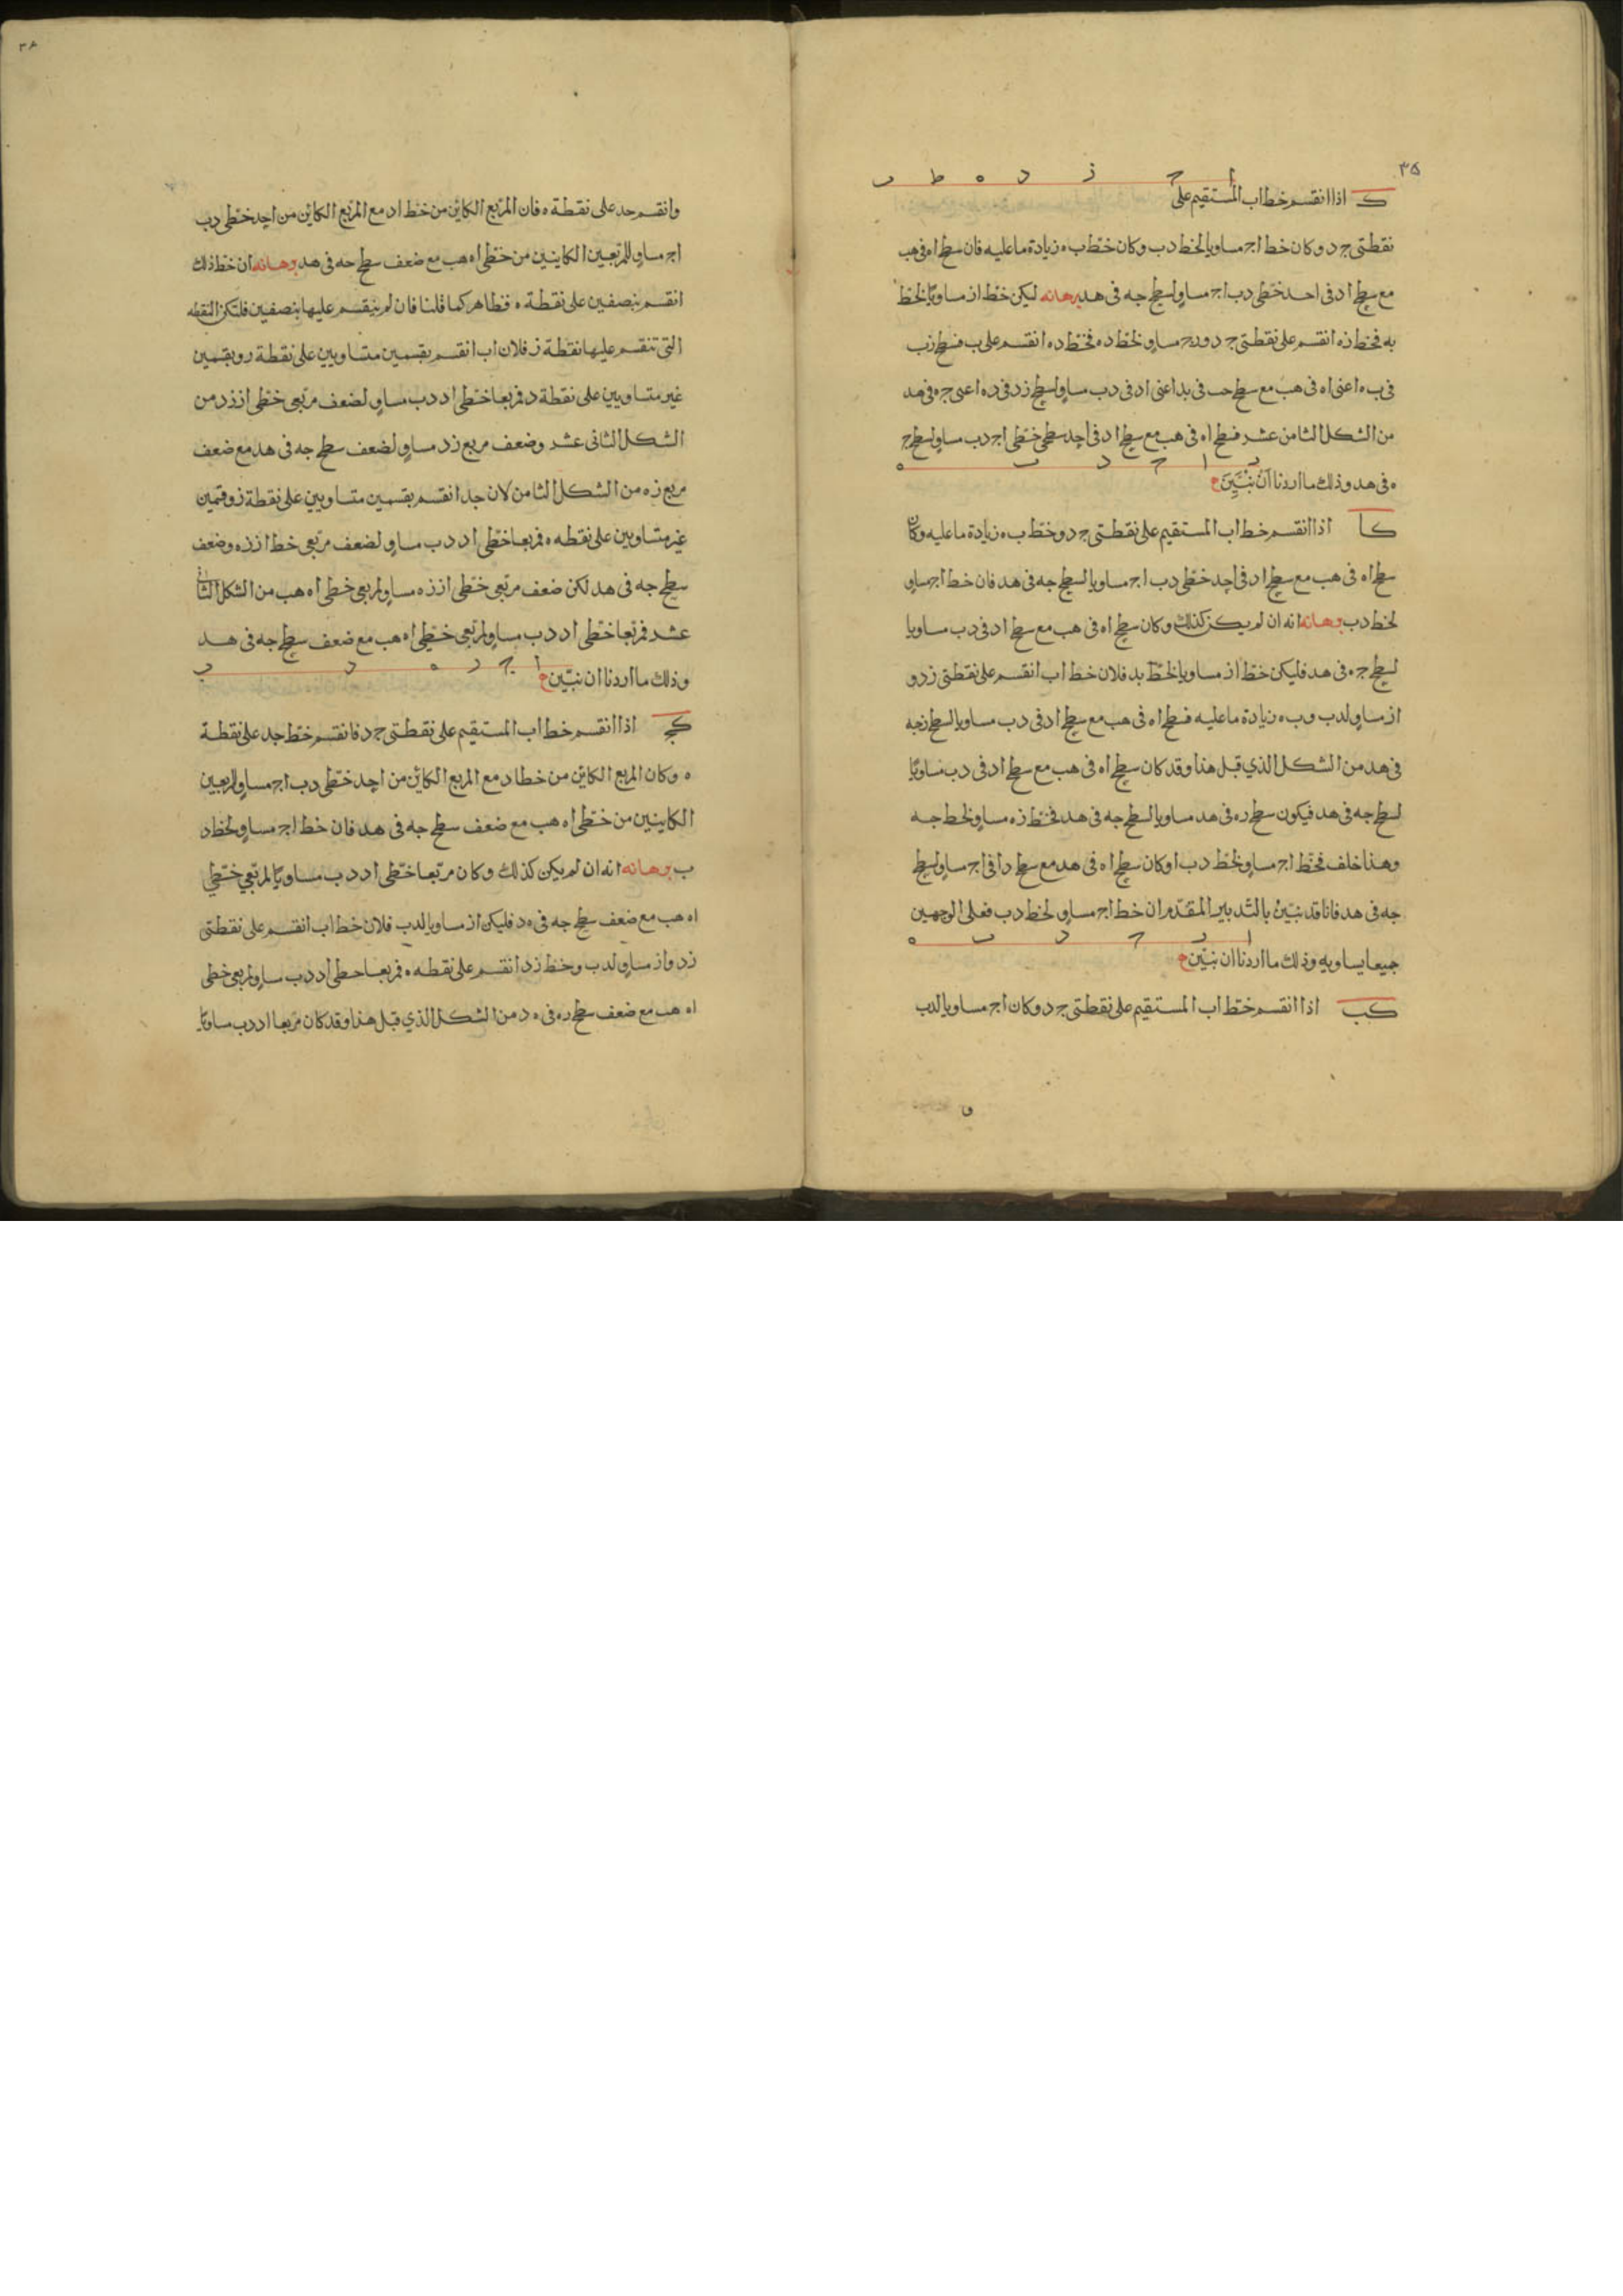 ٣٥
ا ج ز د ه ط ب
ك اذا انقسم خط اب المستقيم على
نقطتى ج د وكان خط اج مساويا لخط دب وكان خط ب ه زيادة ما عليه فان سطح اه فى هب
مع سطح اد فى احد خطى دب اج مساو لسطح جه فى هد برهانه ليكن خط از مساويا لخط
به فخط زه انقسم على نقطتى ج د وزج مساو لخط ده فخط ده انقسم على ب فسطح زب
فى ب ه اعنى اه فى هب مع سطح جب فى بد اعنى اد فى دب مساو لسطح زد فى ده اعنى ج ه فى هد
من الشكل الثامن عشر فسطح اه فى هب مع سطح اد فى احد سطحى خطى اج دب مساو لسطح ج
ز ا ج د ب ه
ه فى هد وذلك ما اردنا ان نبين
كا اذا انقسم خط اب المستقيم على نقطتى ج د وخط ب ه زيادة ما عليه وكان
سطح اه فى هب مع سطح اد فى احد خطى دب اج مساويا لسطح جه فى هد فان خط اج مساو
لخط دب برهانه انه ان لم يكن كذلك وكان سطح اه فى هب مع سطح اد فى دب مساويا
لسطح ج ه فى هد فليكن خط از مساويا لخط بد فلان خط اب انقسم على نقطتى ز د و
از مساو لدب وب ه زيادة ما عليه فسطح اه فى هب مع سطح اد فى دب مساويا لسطح زجه
فى هد من الشكل الذي قبل هذا وقد كان سطح اه فى هب مع سطح اد فى دب مساويا
لسطح جه فى هد فيكون سطح ره فى هد مساويا لسطح جه فى هد فخط زه مساو لخط جه
وهذا خلف فخط اج مساو لخط دب او كان سطح اه فى هد مع سطح دا فى اج مساو لسطح
جه فى هد فانا قد نبين بالتدبير المقدم ان خط اج مساو لخط دب فعلى الوجهين
ا ز ج د ب ه
جميعا يساويه وذلك ما اردنا ان نبين
كب اذا انقسم خط اب المستقيم على نقطتى ج د وكان اج مساويا لدب
وانقسم جد على نقطة ه فان المربع الكاين من خط اد مع المربع الكاين من احد خطى دب
اج مساو للمربعين الكاينين من خطى اه هب مع ضعف سطح جه فى هد برهانه ان خط ذلك
انقسم بنصفين على نقطة ه فظاهر كما قلنا فان لم ينقسم عليها بنصفين فلتكن النقطه
التى تنقسم عليها نقطة ز فلان اب انقسم بقسمين متساويين على نقطة ر وبقسمين
غير متساويين على نقطة د فمربعا خطى اد دب مساو لضعف مربعى خطى از زد من
الشكل الثانى عشر وضعف مربع زد مساو لضعف سطح جه فى هد مع ضعف
مربع زه من الشكل الثامن لان جد انقسم بقسمين متساويين على نقطة ز وقسمين
غير متساوين على نقطه ه فمربعا خطى اد دب مساو لضعف مربعى خط از زه وضعف
سطح جه فى هد لكن ضعف مربعى خطى از زه مساو لمربعى خطى اه هب من الشكل الثانى
عشر فمربعا خطى اد دب مساو لمربعى خطى اه هب مع ضعف سطح جه فى هد
ا ج ز ه د ب
وذلك ما اردنا ان نبين
كج اذا انقسم خط اب المستقيم على نقطتى ج د فانقسم خط جد على نقطة
ه وكان المربع الكاين من خط اد مع المربع الكاين من احد خطى دب اج مساو لمربعين
الكاينين من خطى اه هب مع ضعف سطح جه فى هد فان خط اج مساو لخط د
ب برهانه انه ان لم يكن كذلك وكان مربعا خطى اد دب مساويا لمربعي خطي
اه هب مع ضعف سطح جه فى ه د فليكن از مساويا لدب فلان خط اب انقسم على نقطتى
زد واز مساو لدب وخط زد انقسم على نقطه ه فمربعا خطى اد دب مساو لمربعى خطى
اه هب مع ضعف سطح ره فى ه د من الشكل الذي قبل هذا وقد كان مربعا اد دب مساويا